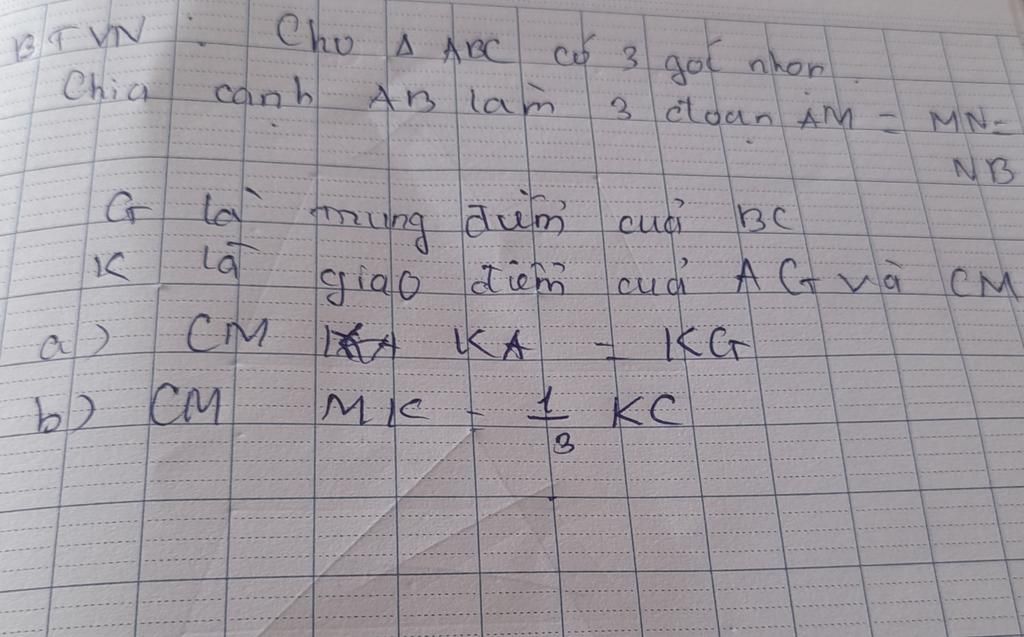 BTVN : Cho Δ ABC có 3 góc nhọn
Chia cạnh AB làm 3 đoạn AM = MN =
NB
G là trung điểm cuả BC
K là giao điểm cuả AG và CM
a) CM KA = KG
b) CM MK = 1/3 KC